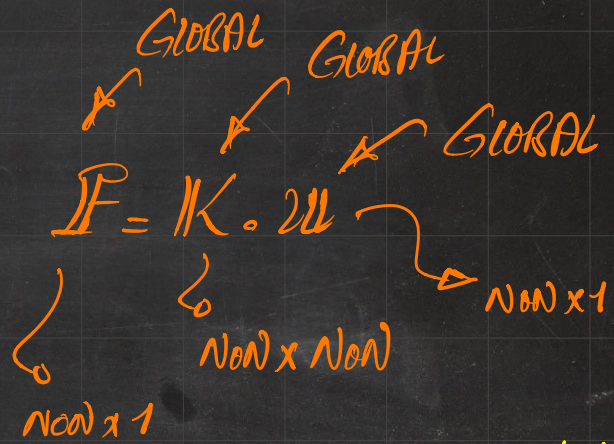 GLOBAL
GLOBAL
GLOBAL
𝔽 = 𝕂 . 𝕌
NON x 1
NON x NON
NON x 1